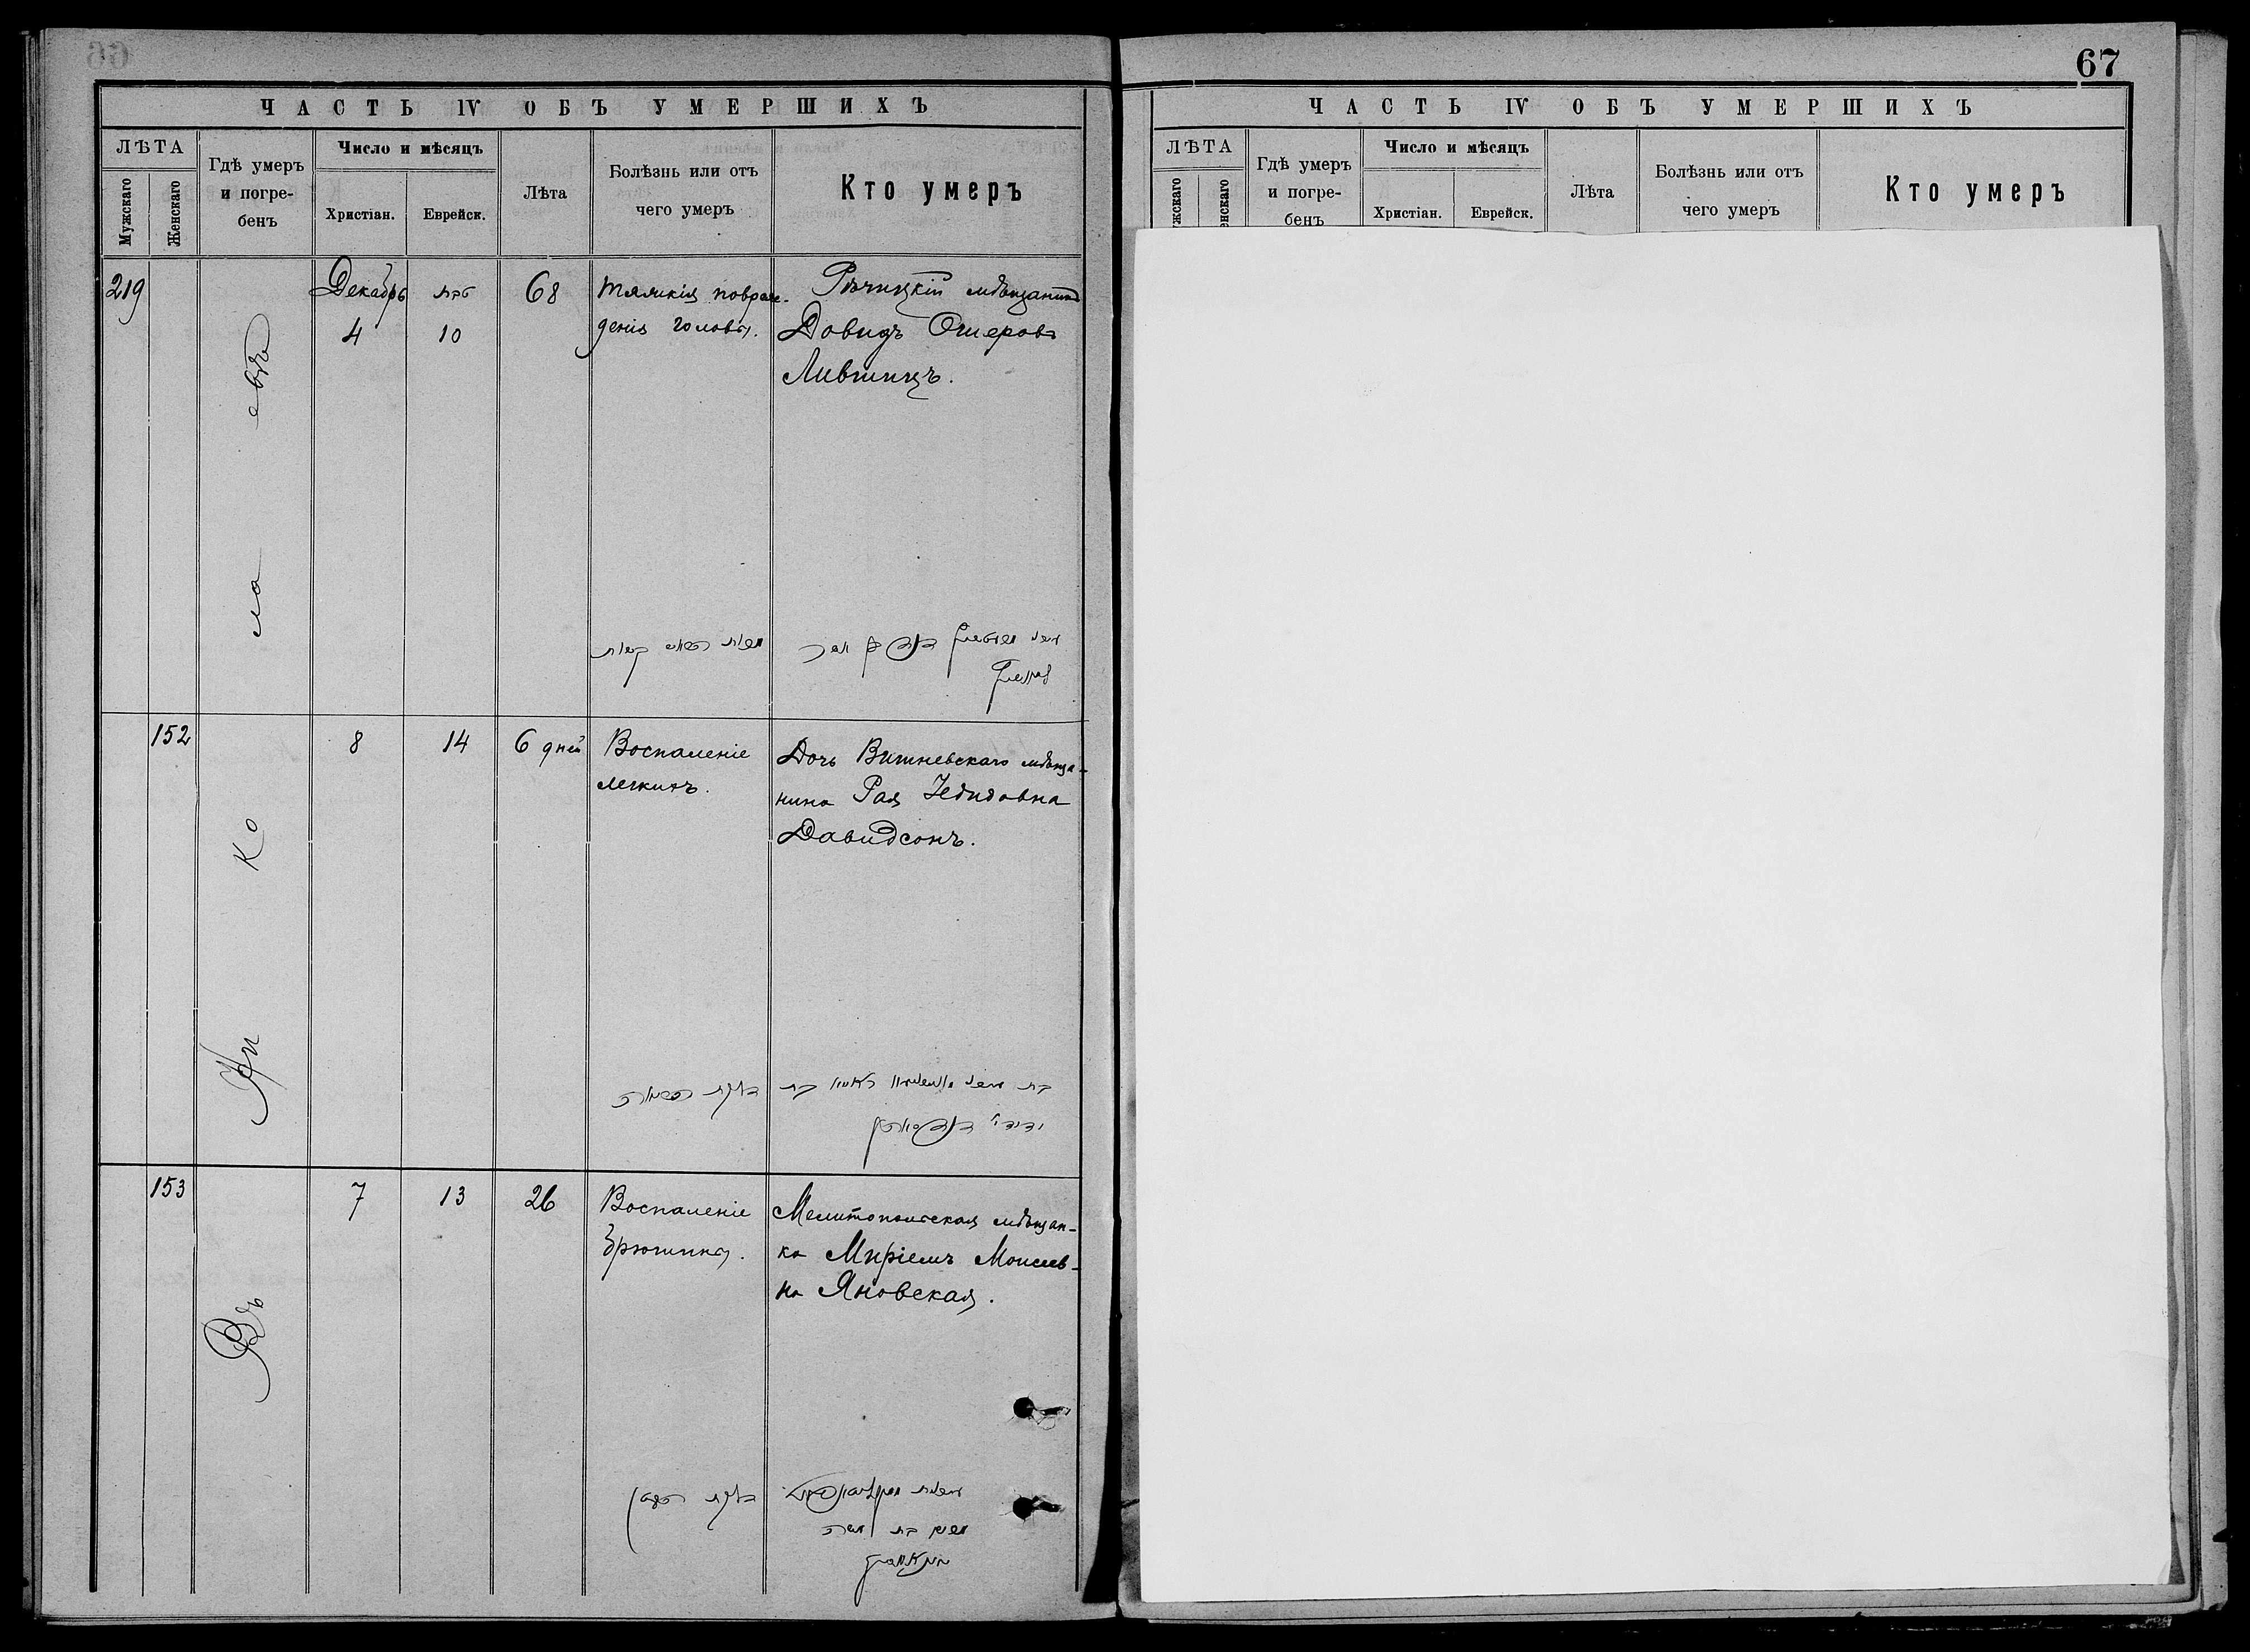 66
67
ЧАСТЬ IV ОБЪ УМЕРШИХЪ
ЛѢТА
Мужскаго
Женскаго
Гдѣ умеръ
и погре-
бенъ
Число и мѣсяцъ
Христіан.
Еврейск.
Лѣта
Болѣзнь или отъ
чего умеръ
Кто умеръ
Въ Николаевѣ
219
Декабрь
4
טבת
10
68
Тяжкія повреж-
денія головы.
Рѣчицкій мѣщанинъ
Довидъ Ошеровъ
Лившицъ.
152
8
14
6 дней
Воспаленіе
легкихъ.
Дочь Вишневскаго мѣща-
нина Рая Іедидовна
Давидсонъ.
דלקת הריאות
153
7
13
26
Воспаленіе
брюшины.
Мелитопольская мѣщан-
ка Миріемъ Моисеев-
на Яновская.
דלקת
ЧАСТЬ IV ОБЪ УМЕРШИХЪ
ЛѢТА
жскаго
енскаго
Гдѣ умеръ
и погре-
бенъ
Число и мѣсяцъ
Христіан.
Еврейск.
Лѣта
Болѣзнь или отъ
чего умеръ
Кто умеръ